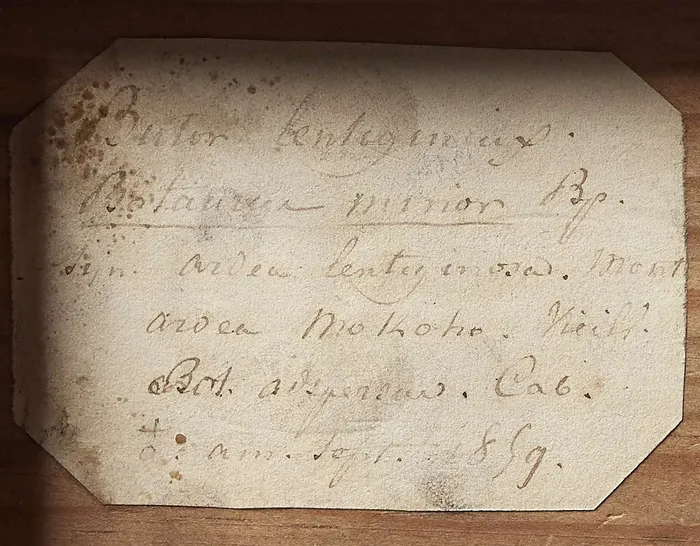 Butor lentigineux.
Botaurus minor Bp.
Syn. ardea lentiginosa. Mont
ardea Mokoho. Vieill.
Bot. adspersus. Cab.
am. Sept. 1859.